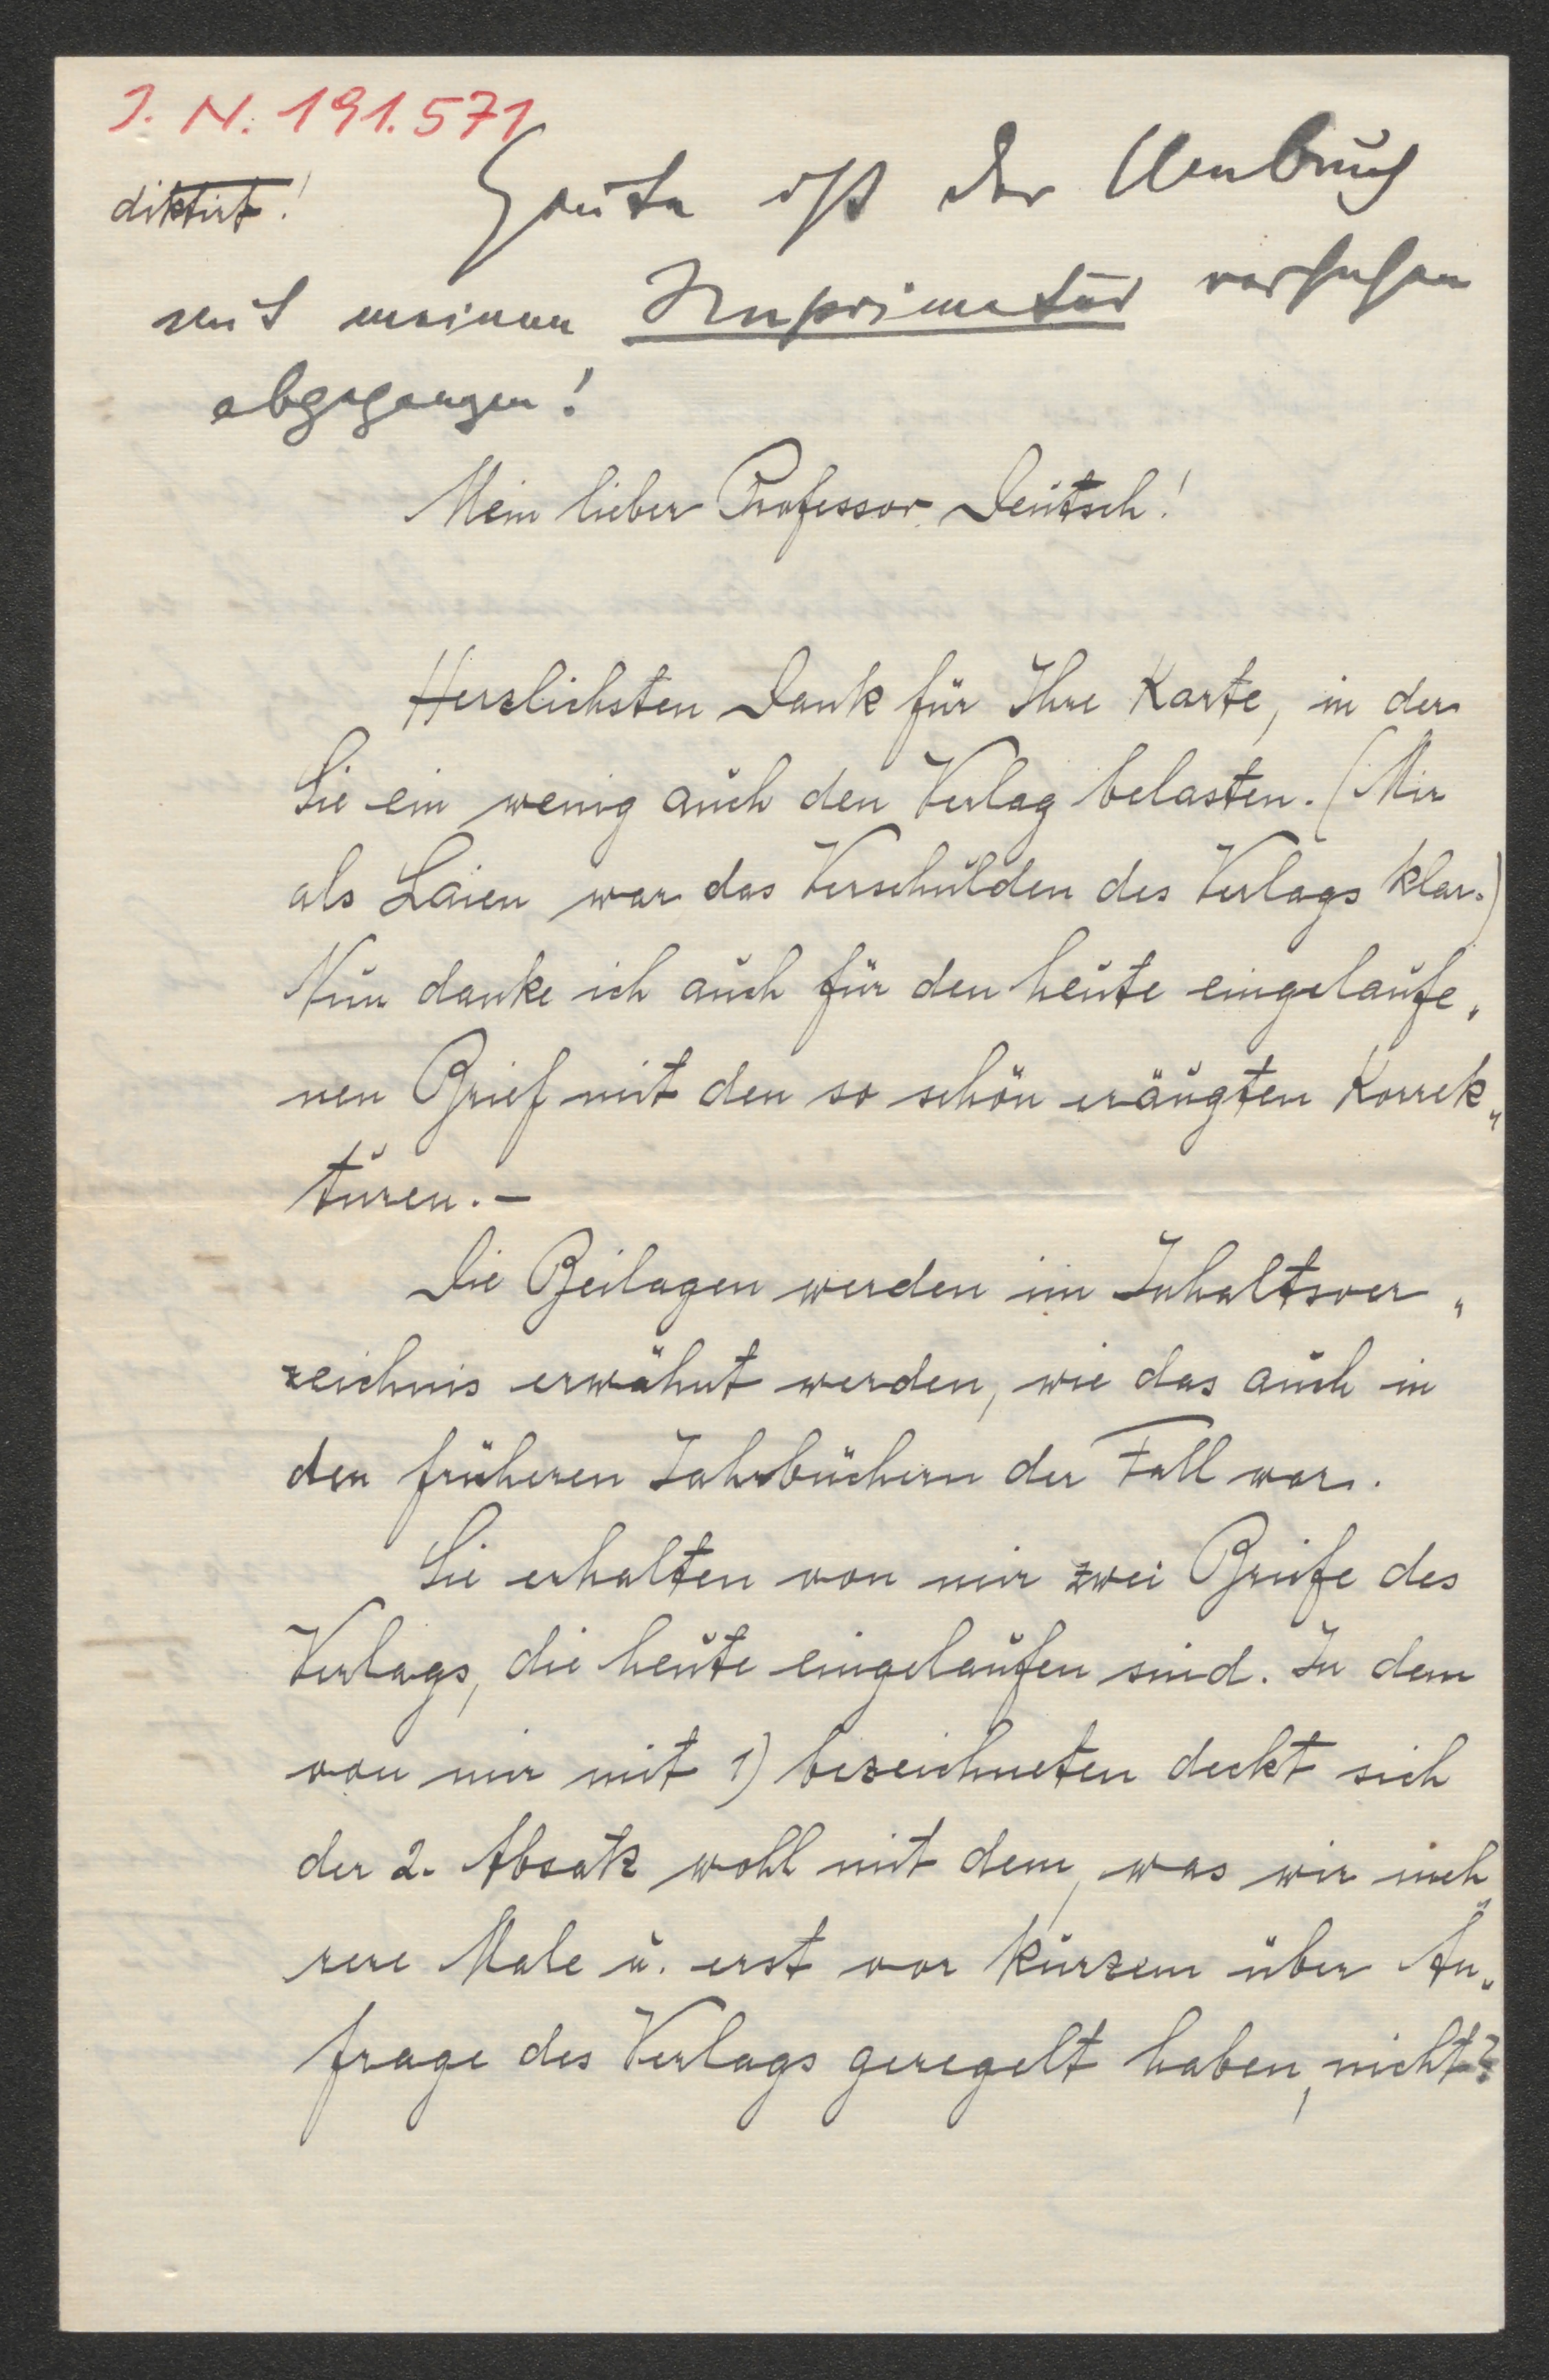 J. N. 191.571
diktirt!
Heute ist der Umbruch
mit meinem Imprimatur versehen
abgegangen!
Mein lieber Professor Deutsch!
Herzlichsten Dank für Ihre Karte, in der
Sie ein wenig auch den Verlag belasten. (Mir
als Laien war das Verschulden des Verlags klar.)
Nun danke ich auch für den heute eingelaufe„
nen Brief mit den so schön eräugten Korrek„
turen. –
Die Beilagen werden im Inhaltsver„
zeichnis erwähnt werden, wie das auch in
den früheren Jahrbüchern der Fall war.
Sie erhalten von mir zwei Briefe des
Verlags, die heute eingelaufen sind. In dem
von mir mit 1) bezeichneten deckt sich
der 2. Absatz wohl mit dem, was wir meh„
rere Male u. erst vor kurzem über An„
frage des Verlags geregelt haben, nicht?